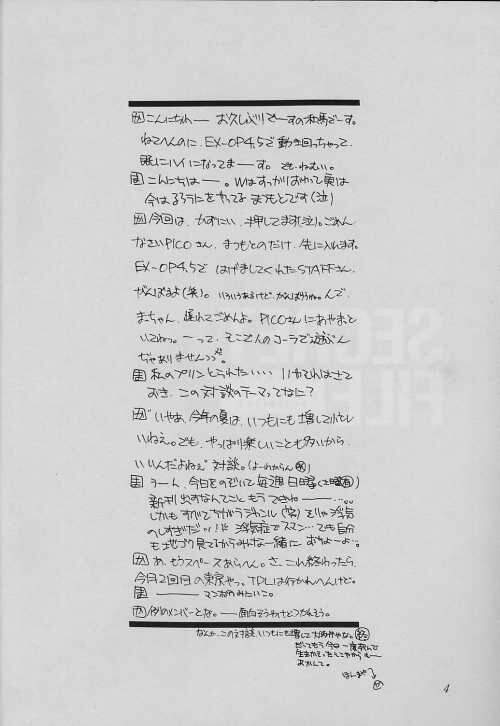 こんにちわ── お久しぶりでーすの相馬でーす。
ねてへんのに、EX-OP4.5で動き回っちゃって、
眠にハイになってまーす。でも、ねむい。
こんにちは──。Wはすっかりおわって実は
今はるろうにをやってるまつもとです(泣)
今回は、かずにい、押してます(泣)。ごめん
なさいPICOさん、まつもとのだけ、先に入れます。
EX-OP4.5で はげましてくれたSTAFFさん、
がんばるよ(笑)。いろいろあるけど、がんばろうね。んで、
まーちゃん、遅れてごめんよ。PICOさんにあやまっと
いてねっ。──って、そこでんのコーラで遊ぶん
ぢゃありませんっっ
私のプリンとられたいい いかてれはさて
おき、この対談のテーマってなに?
"いやあ、今年の夏は、いつもにも増して忙し
いねえ。でも、やっぱり楽しいことも多いから
いいんだよねえ"対談。(よーわからん
うーん、今日をのぞいて毎週日曜(と
新刊出すなんてこともうできねー───…。。
しかもすべてちがうジャンル(笑)をじゃ浮気
のしすぎだっ!!浮気症でスマン…でも自分
も
あ、もうスペースあらへん。さ、これ終わったら、
今月2回目の東京やっ。TDLは行かれへんけど。
─── マンガのみたいこ。
例のメンバーとな。──面白そうやけどつかれそう。
なんか、この対談、いつもにも増して
だってもう今日一度死んで
生きかえったとこやから
ほんまや
4
SECRET
FILE